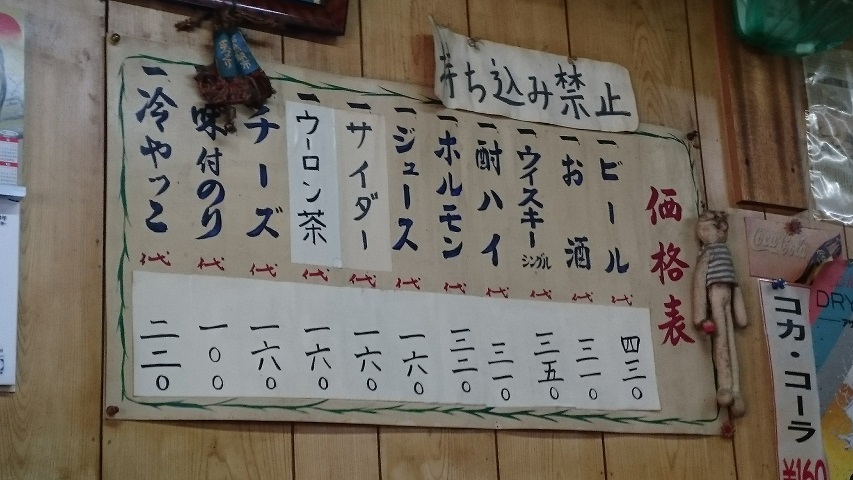 持ち込み禁止
価格表
一ビール代 四三〇
一お酒代 三一〇
一ウイスキーシングル代 三五〇
一酎ハイ代 三一〇
一ホルモン代
一ジュース代 一六〇
一サイダー代 一六〇
一ウーロン茶代 一六〇
チーズ代 一六〇
味付のり代 一〇〇
一冷やっこ代 二二〇
Coca-Cola
コカ・コーラ
¥160
DRY